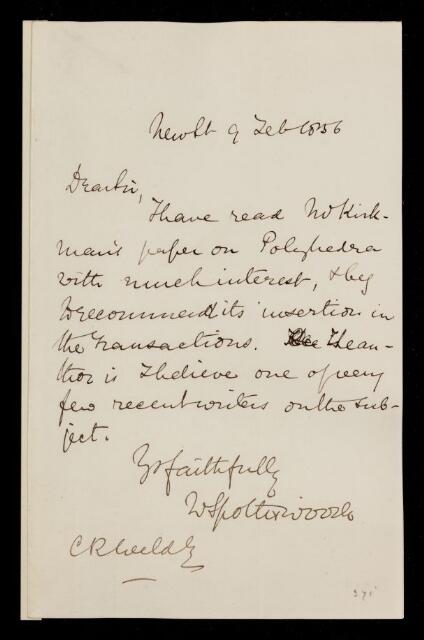 New St 9 Feb 1856
Dear Sir,
I have read Mr Kirk-
man's paper on Polyhedra
with much interest, & beg
to recommend its insertion in
the Transactions. The au-
thor is I believe one of very
few recent writers on the sub-
ject.
Yrs faithfully
W Spottiswoode
C R Weld Esq
371